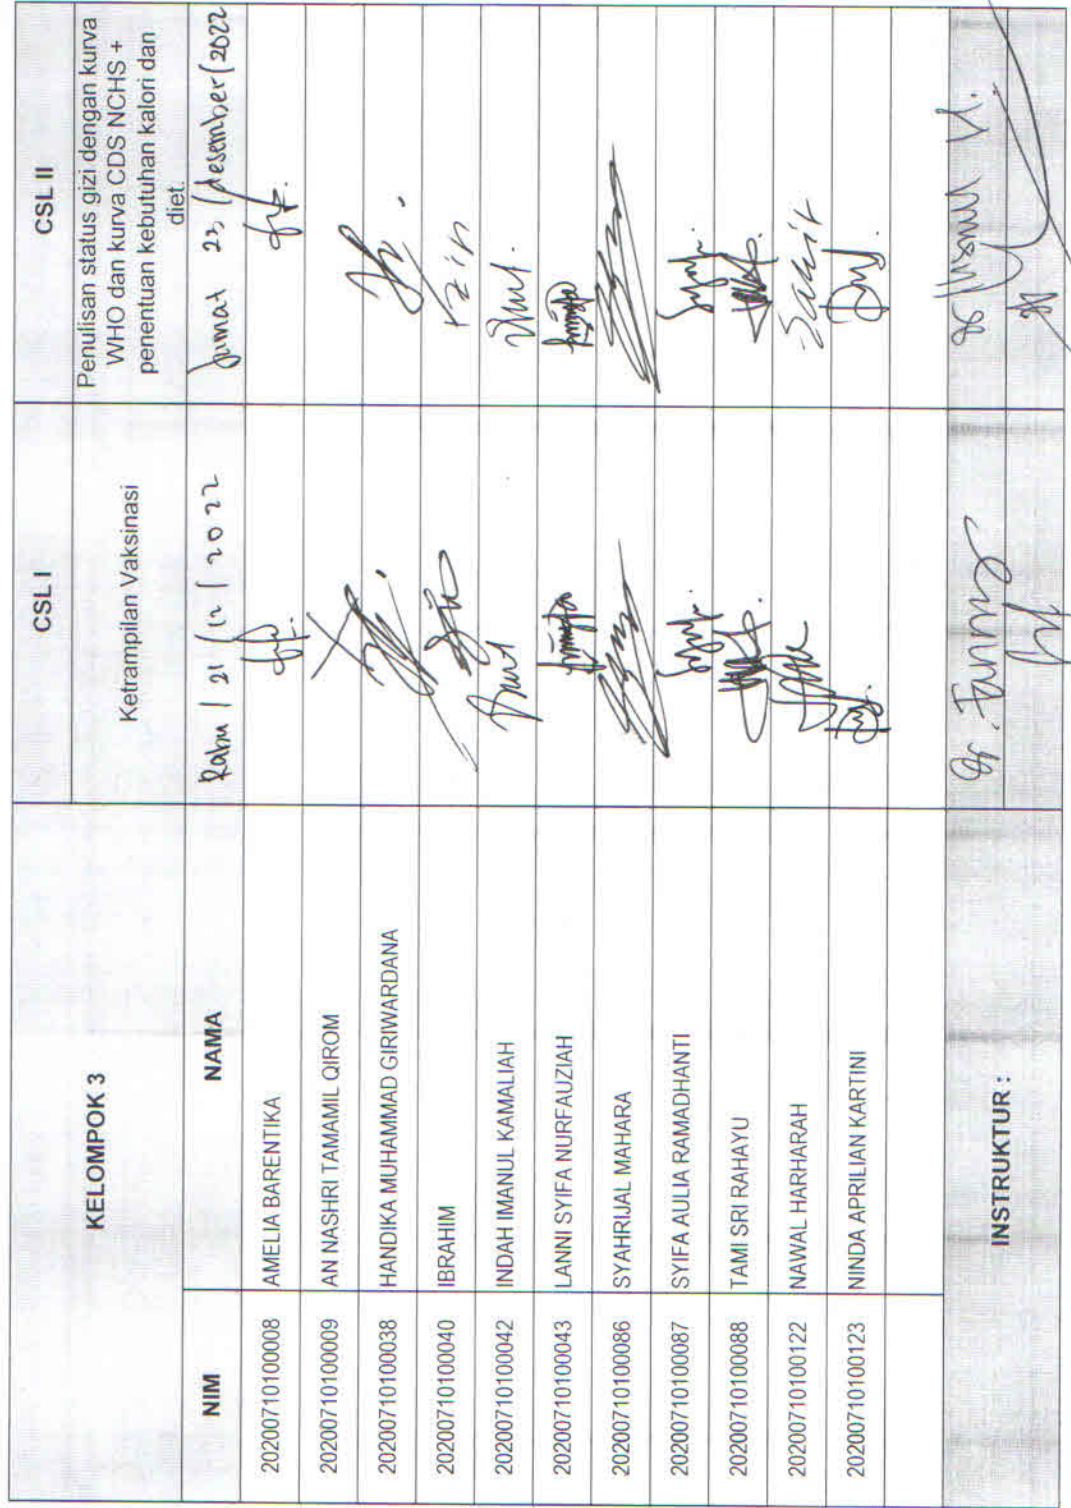 KELOMPOK 3
CSL I
CSL II
Ketrampilan Vaksinasi
Penulisan status gizi dengan kurva
WHO dan kurva CDS NCHS +
penentuan kebutuhan kalori dan
diet.
NIM NAMA Rabu / 21 / 12 / 2022 Jumat 23 / desember / 2022
20200710100008 AMELIA BARENTIKA
20200710100009 AN NASHRI TAMAMIL QIROM
20200710100038 HANDIKA MUHAMMAD GIRIWARDANA
20200710100040 IBRAHIM Izin
20200710100042 INDAH IMANUL KAMALIAH
20200710100043 LANNI SYIFA NURFAUZIAH
20200710100086 SYAHRIJAL MAHARA
20200710100087 SYIFA AULIA RAMADHANTI
20200710100088 TAMI SRI RAHAYU
20200710100122 NAWAL HARHARAH Sakit
20200710100123 NINDA APRILIAN KARTINI
INSTRUKTUR :